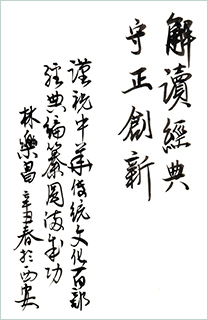 解讀經典
守正創新
謹祝中華傳統文化百部
經典編纂圓滿成功
林樂昌辛丑春於西安